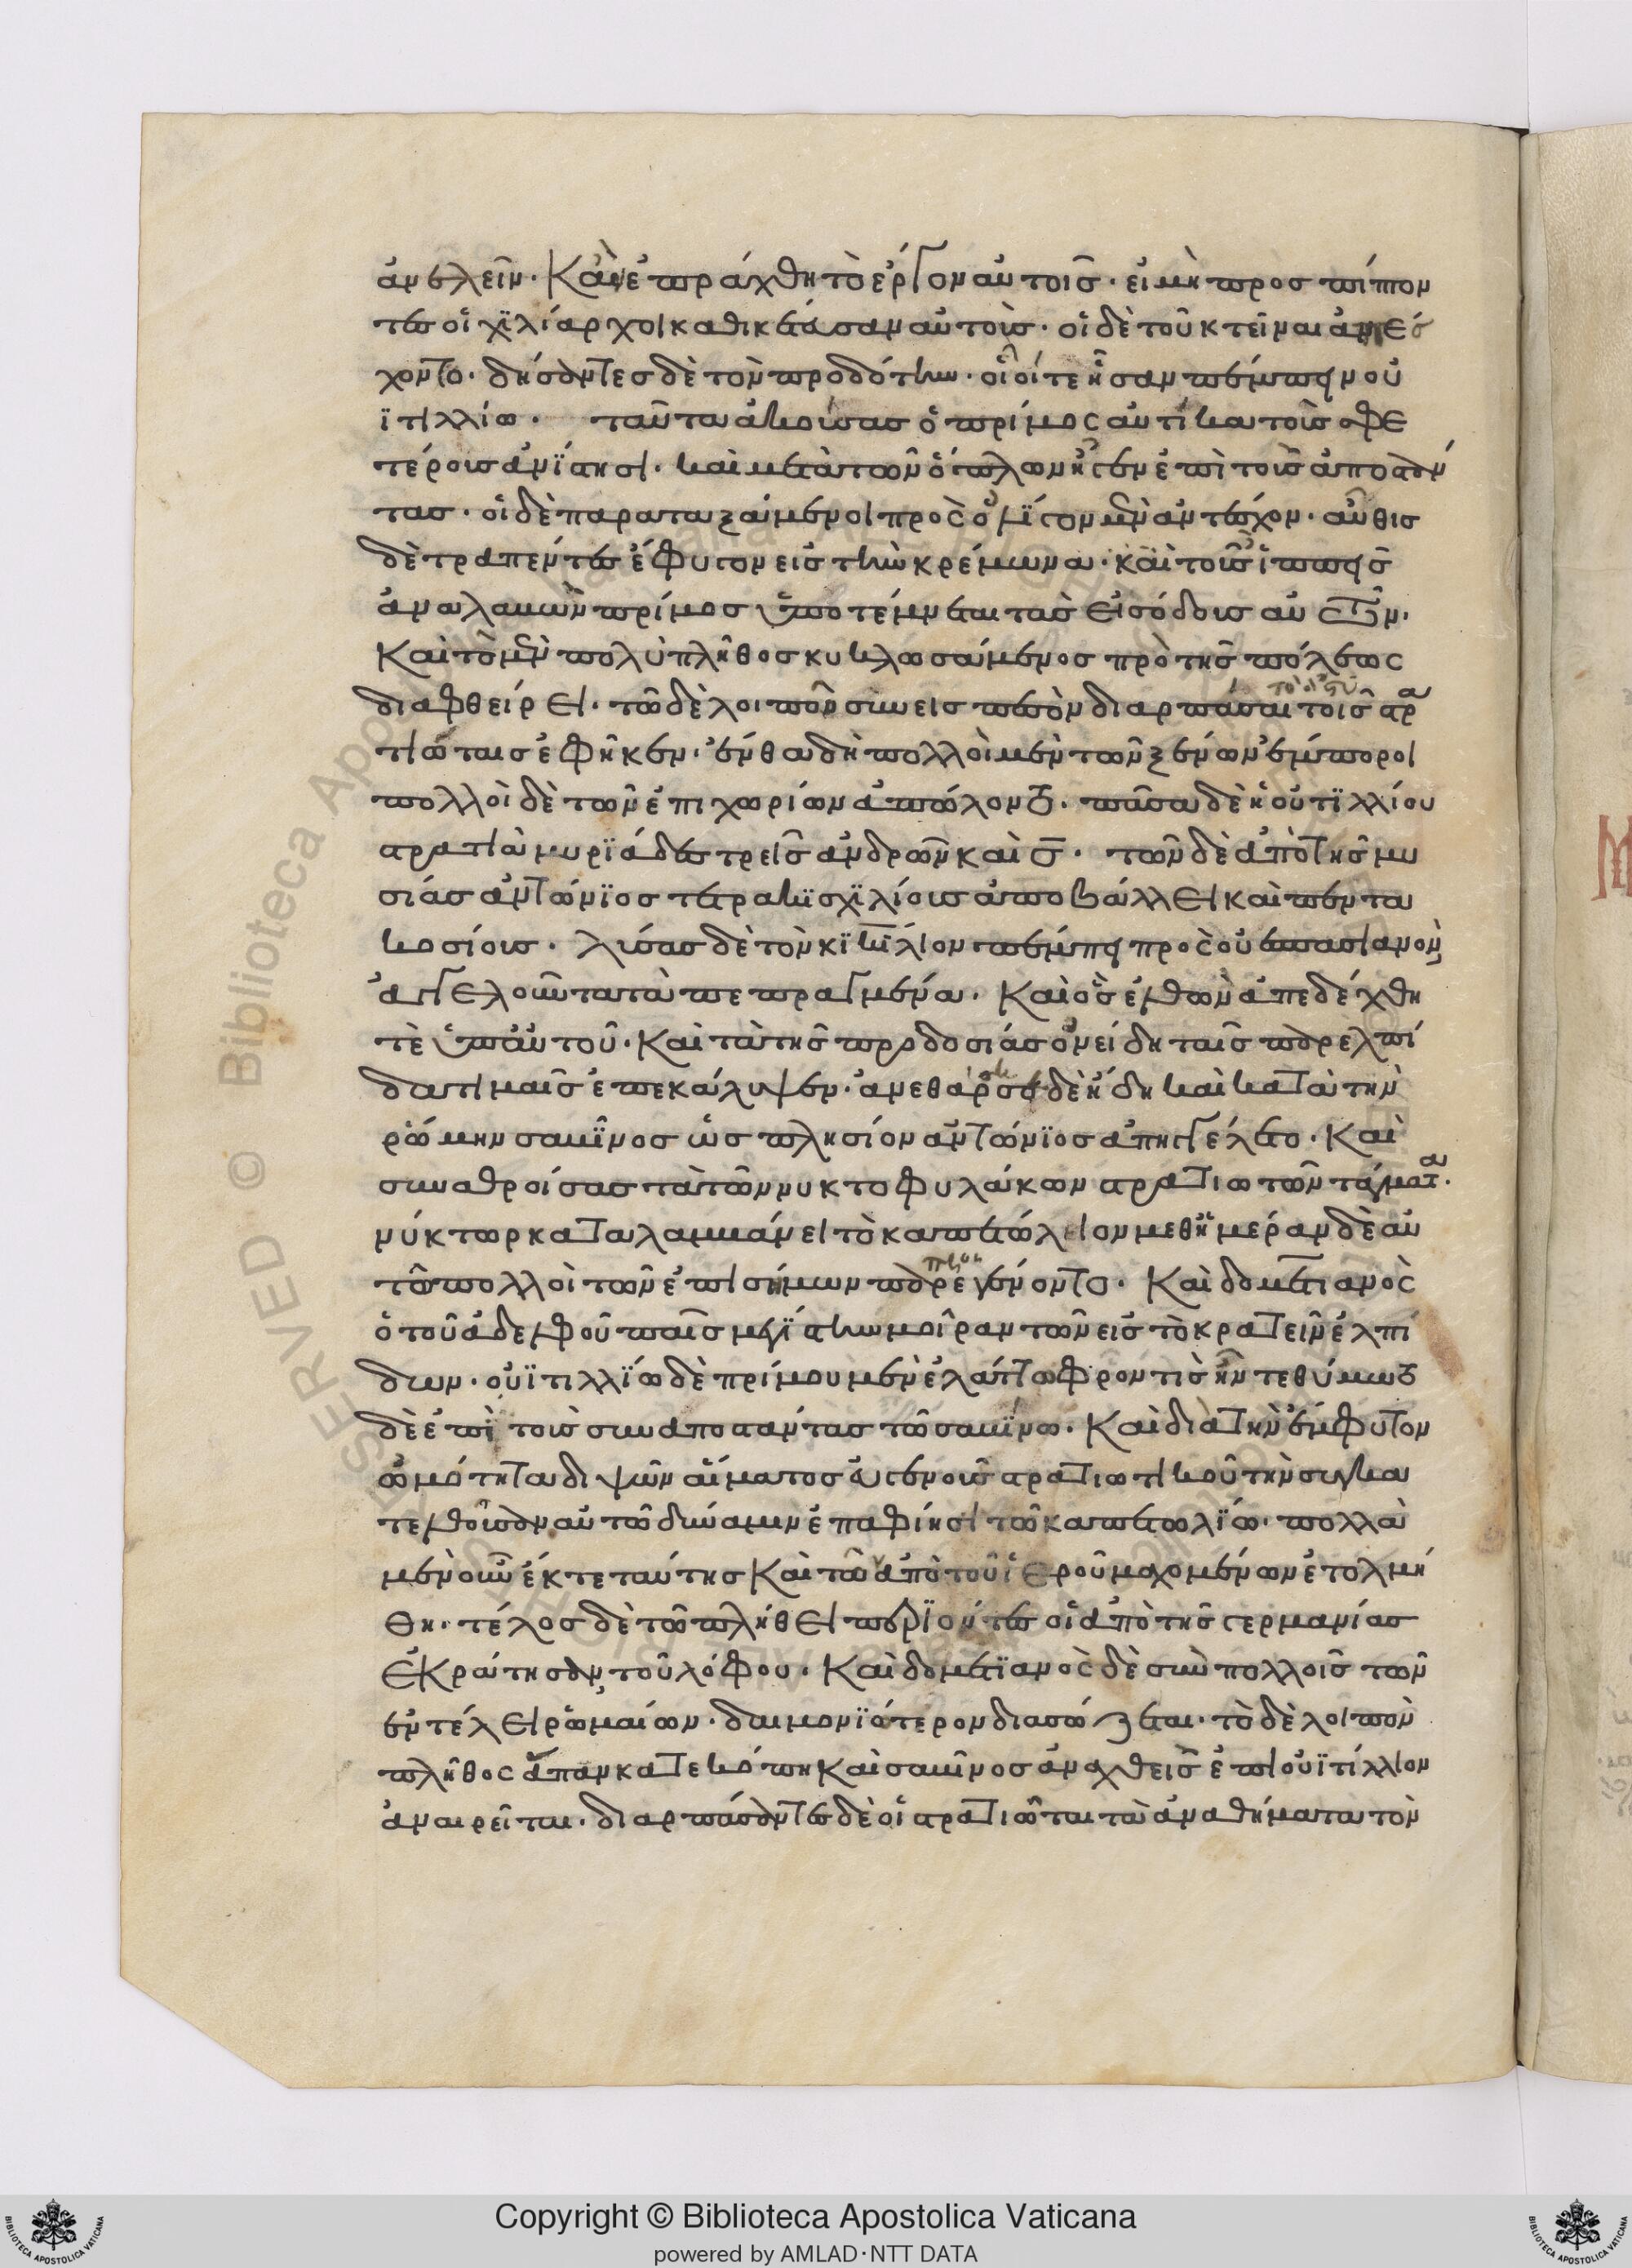 ἀνελεῖν. Κἂν ἐπράχθη τὸ ἔργον αὐτοῖς. εἰ μὴ προσπίπτον
τες οἱ χιλίαρχοι καθικέτευσαν αὐτούς. οἱ δὲ τοῦ κτεῖναι ἀπέσ
χοντο. δήσαντες δὲ τὸν προδότην. οἷοί τε ἦσαν πέμπειν οὐ
ϊτιλλίω. ταῦτα ἀκούσας ὁ πρίμος αὐτίκα τοὺς σφε
τέρους ἀνΐστησι. καὶ μετὰ τῶν ὅπλων ἦγεν ἐπὶ τοὺς ἀποστάν
τας. οἱ δὲ παραταξάμενοι πρὸς ὀλίγον μὲν ἀντέσχον. αὖθις
δὲ τραπέντες ἔφυγον εἰς τὴν κρέμωνα. καὶ τοὺς ἱππεῖς
ἀναλαβὼν πρίμος ὑποτέμνεται τὰς εἰσόδους αὐτῶν.
Καὶ τὸ μὲν πολὺ πλῆθος κυκλωσάμενος πρὸ τῆς πόλεως
διαφθείρει. τῶ δὲ λοιπῶ συνεισπεσὼν διαρπάσαι τὸ ἄστυ τοῖς στρα
τιώταις ἐφῆκεν. ἔνθα δὴ πολλοὶ μὲν τῶν ξένων ἔμποροι
πολλοὶ δὲ τῶν ἐπιχωρίων ἀπώλοντο. πᾶσα δὲ ἡ οὐϊτιλλίου
στρατιὰ μυριάδες τρεῖς ἀνδρῶν καὶ σ. τῶν δὲ ἀπὸ τῆς μυ
σίας ἀντώνιος τετρακισχιλίους ἀποβάλλει καὶ πεντα
κοσίους. λύσας δὲ τὸν κικίλιον πέμπει πρὸς οὐεσπασιανὸν
ἀγγελοῦντα τὰ πεπραγμένα. Καὶ ὃς ἐλθὼν ἀπεδέχθη
τὲ ὑπ' αὐτοῦ. Καὶ τὰ τῆς προδοσίας ὀνείδη ταῖς παρ' ἐλπί
δα τιμαῖς ἐπεκάλυψεν. ἀνεθάρσει δὲ ἤδη καὶ κατὰ τὴν
ῥώμην σαβῖνος ὡς πλησίον ἀντώνιος ἀπηγγέλετο. Καὶ
συναθροίσας τὰ τῶν νυκτοφυλάκων στρατιωτῶν τάγματα.
νύκτωρ καταλαμβάνει τὸ καπετώλιον μεθημέραν δὲ αὐ
τῶ πολλοὶ τῶν ἐπισήμων παρεγένοντο. Καὶ δομετιανὸς
ὁ τοῦ ἀδελφοῦ παῖς μεγίστην μοῖραν τῶν εἰς τὸ κρατεῖν ἐλπί
δων. οὐϊτιλλίω δὲ πρίμου μὲν ἐλάττω φροντὶς ἦν τεθύμωτο
δὲ ἐπὶ τοὺς συναποστάντας τῶ σαβίνω. Καὶ διὰ τὴν ἔμφυτον
ὠμότητα διψῶν αἵματος εὐγενοῦς στρατιωτικοῦ τὴν συγκα
τελθοῦσαν αὐτῶ δύναμιν ἐπαφίησι τῶ καπετωλίω. πολλὰ
μὲν οὖν ἔκ τε ταύτης Καὶ τῶν ἀπὸ τοῦ ἱεροῦ μαχομένων ἐτολμή
θη. τέλος δὲ τῶ πλήθει περιόντες οἱ ἀπὸ τῆς γερμανίας
ἐκράτησαν τοῦ λόφου. Καὶ δομετιανὸς δὲ σὺν πολλοῖς τῶν
ἐν τέλει ῥωμαίων. δαιμονιώτερον διασώζεται. τὸ δὲ λοιπὸν
πλῆθος ἅπαν κατεκόπη Καὶ σαβῖνος ἀναχθεὶς ἐπὶ οὐϊτίλλιον
ἀναιρεῖται. διαρπάσαντες δὲ οἱ στρατιῶται τὰ ἀναθήματα τὸν